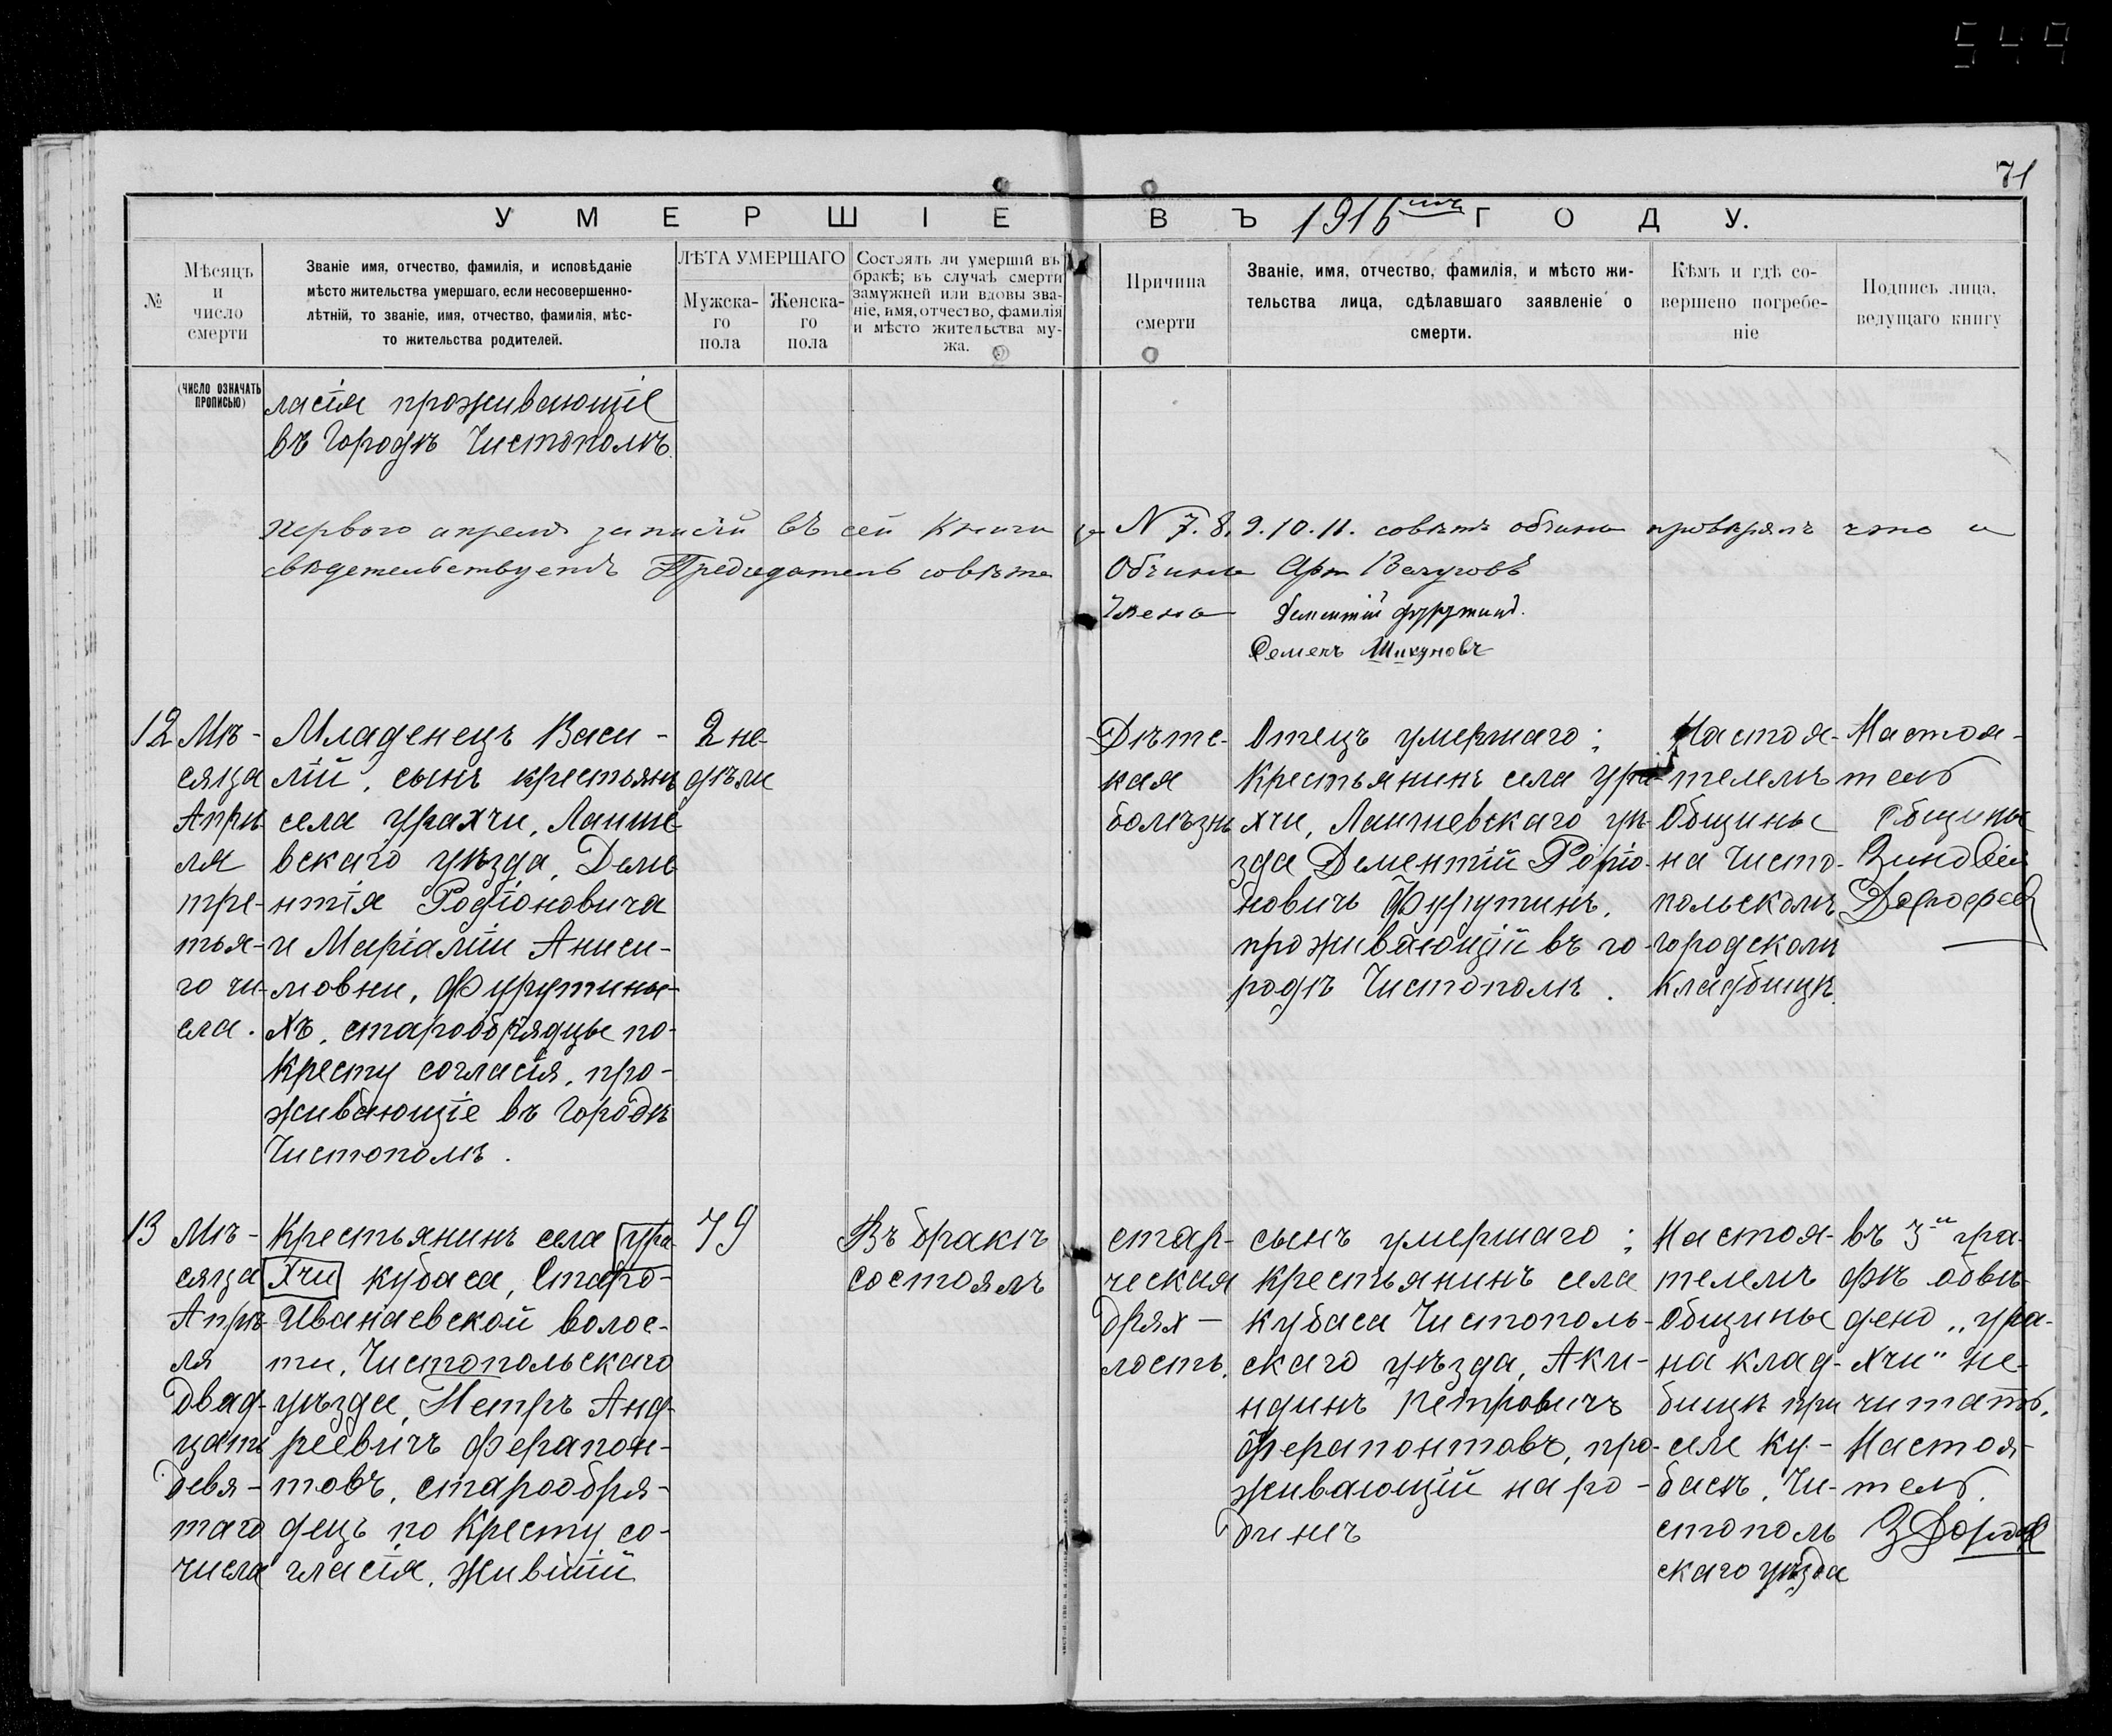 549
71
УМЕРШІЕ ВЪ 1916мъ ГОДУ.
№
Мѣсяцъ
и
число
смерти
Званіе имя, отчество, фамилія, и исповѣданіе
мѣсто жительства умершаго, если несовершенно-
лѣтній, то званіе, имя, отчество, фамилія, мѣс-
то жительства родителей.
ЛѢТА УМЕРШАГО
Мужска-
го
пола
Женска-
го
пола
Состоялъ ли умершій въ
бракѣ; въ случаѣ смерти
замужней или вдовы зва-
ніе, имя, отчество, фамилія
и мѣсто жительства му-
жа.
Причина
смерти
Званіе, имя, отчество, фамилія, и мѣсто жи-
тельства лица, сдѣлавшаго заявленіе о
смерти.
Кѣмъ и гдѣ со-
вершено погребе-
ніе
Подпись лица,
ведущаго книгу
(ЧИСЛО ОЗНАЧАТЬ
ПРОПИСЬЮ)
ласія проживающіе
въ Городѣ Чистополѣ.
Первого апреля записей въ сей Книги за N 7. 8. 9. 10. 11. советъ общины провѣрялъ что и
свидетельствуетъ Председатель совѣта Общины
Члена
Семенъ Шикуновъ
12
Мѣ-
сяца
Апрѣ-
ля
тре-
тья-
го чи-
сла.
Младенецъ Васи-
лій, сынъ крестьянъ
села Урахчи, Лаише-
вскаго уѣзда, Деме-
нтія Родіоновича
и Маріаміи Аниси-
мовны, Фурутины-
хъ, старообрядцы по
Кресту согласія, про-
живающіе въ Городѣ
Чистополѣ.
2 не-
дѣли
Дѣтс-
кая
болѣзнь
Отецъ умершаго;
Крестьянинъ села Ура-
хчи, Лаишевскаго уѣ-
зда Дементій Родіо-
новичъ Фурутинъ,
проживающій въ го-
родѣ Чистополѣ.
Настоя-
телемъ
Общины
на Чисто-
польскомъ
Городскомъ
Кладбищѣ.
Настоя-
тель
Общины
Зиновій
Дорофеев
13
Мѣ-
сяца
Апрѣ-
ля
Двад-
цать
Девя-
таго
числа
Крестьянинъ села Ура-
хчи Кубаса, Старо-
Иванаевской волос-
ти, Чистопольскаго
уѣзда, Петръ Анд-
реевичъ Ферапон-
товъ, старообря-
децъ по Кресту со-
гласія, жившій
79
Въ бракѣ
состоялъ
стар-
ческая
Дрях-
лость.
сынъ умершаго;
Крестьянинъ села
Кубаса Чистополь-
скаго уѣзда, Аки-
ндинъ Петровичъ
Ферапонтовъ, про-
живающій на ро-
динѣ
Настоя-
телемъ
Общины
на клад-
бищѣ при
селѣ Ку-
басѣ, Чи-
стополь
скаго уѣзда
въ 3й гра-
фѣ обве-
дено „Ура-
хчи" не-
читать.
Настоя-
тель